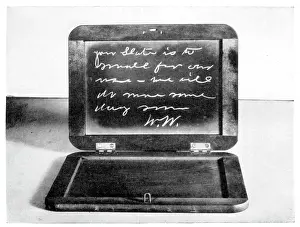 you Slate is to
small for our
use – we will
do more some
day soon
W.W.